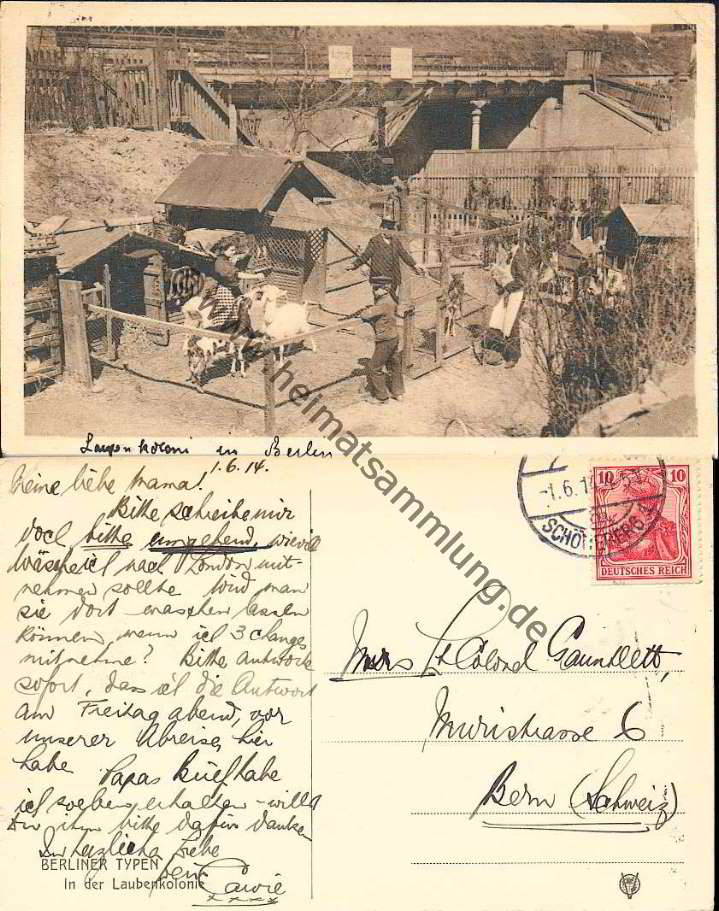 Laubenkoloni in Berlin
1.6.14.
Meine liebe Mama!
Bitte schreibe mir
doch bitte umgehend, wieviel
Wäsche ich nach London mit-
nehmen sollte. Wird man
sie dort waschen lassen
können, wenn ich 3 changes
mitnehme? Bitte antworte
sofort, dass ich die Antwort
am Freitag abend, vor
unserer Abreise, hier
habe. Papas Brief habe
ich soeben erhalten - willst
Du ihm bitte dafür danken
In herzlicher Liebe
BERLINER TYPEN
In der Laubenkolonie
xxxx
10 10
DEUTSCHES REICH
-1.6.1
SCHÖNEBERG
Lt Colonel Gauntlett,
Muristrasse 6
Bern (Schweiz)
www.heimatsammlung.de